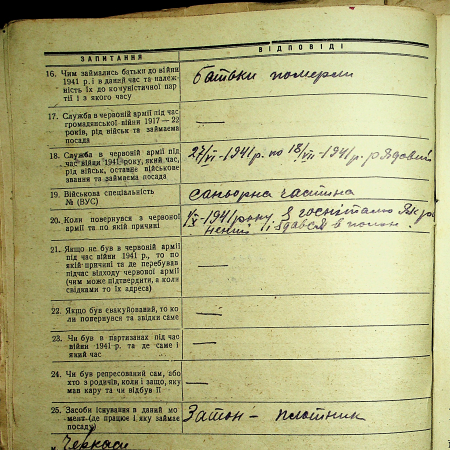 ЗАПИТАННЯ
ВІДПОВІДІ
16. Чим займались батьки до війни
1941 р. і в даний час та належ-
ність їх до комуністичної пар-
тії і з якого часу
батьки померли
17. Служба в червоній армії під час
громадянської війни 1917—22
років, рід військ та займаема
посада
—
18. Служба в червоній армії під
час війни 1941 року, який час,
рід військ, останнє військове
звання та займаема посада
27/VI-1941 р. по 18/VII-1941 р. рядовий
19. Військова спеціальність
№ (ВУС)
саньорна частина
20. Коли повернувся з червоної
армії та по якій причині
-1941 року. З госпіталю як ра-
нений і здався в полон
21. Якщо не був в червоній армії
під час війни 1941 р., то по
якій причині та де перебував
підчас відходу червоної армії
(чим може підтвердити, а коли
свідками то їх адреса)
—
22. Якщо був евакуйований, то ко-
ли повернувся та звідки саме
—
23. Чи був в партизанах під час
війни 1941 р. та де саме і
який час
—
24. Чи був репресований сам, або
хто з родичів, коли і защо, яку
мав кару та чи відбув її
—
25. Засоби існування в даний мо-
мент (де працює і яку займає
посаду)
Затон - плотник
Черкаси